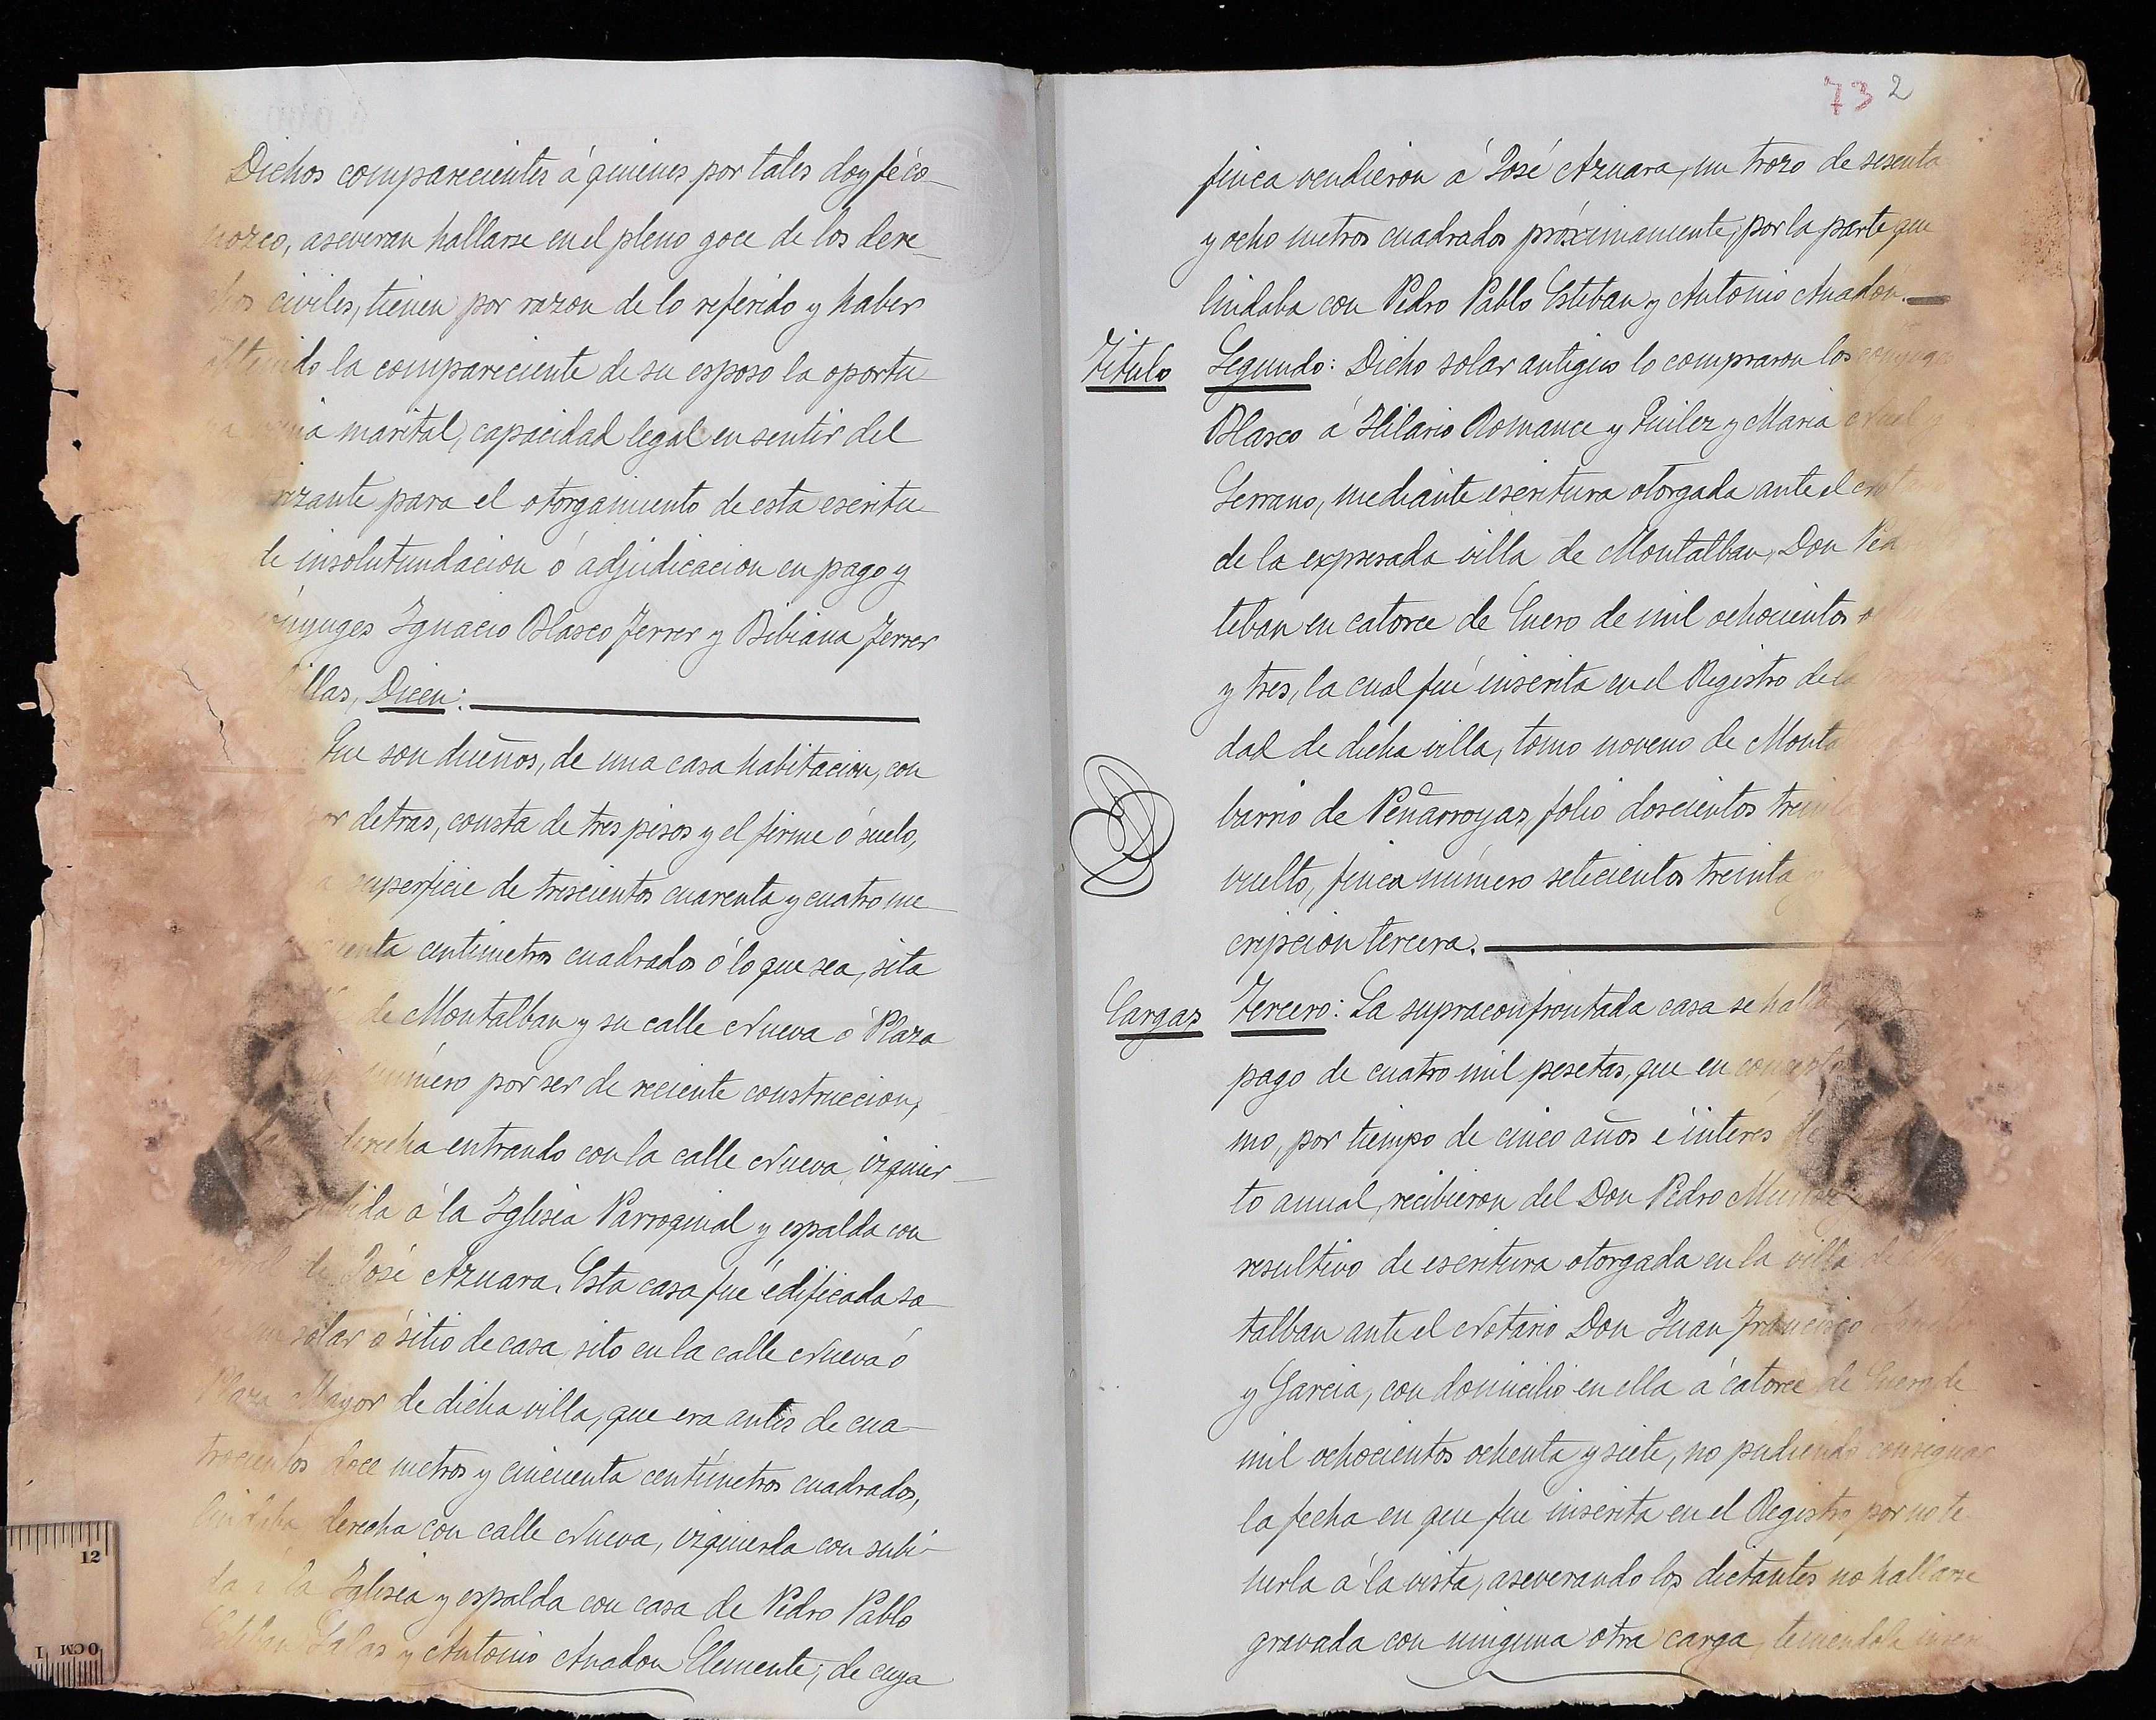 Dichos comparecientes á quienes por tales doy fé co-
nozco, aseveran hallarse en el pleno goce de los dere-
chos civiles, tienen por razon de lo referido y haber
obtenido la compareciente de su esposo la oportu-
marital, capacidad legal en sentir del
rizante para el otorgamiento de esta escritu-
de insolutundacion ó adjudicacion en pago y
ónyuges Ygnacio Blasco Ferrer y Bibiana Ferrer
illas, Dicen:
Que son dueños, de una casa habitacion, con
or detras, consta de tres pisos y el firme ó suelo,
superficie de trescientos cuarenta y cuatro me-
cuenta centimetros cuadrados ó lo que sea, sita
de Montalban y su calle Nueva ó Plaza
número por ser de reciente construccion,
derecha entrando con la calle Nueva, izquier-
bida á la Yglesia Parroquial y espalda con
de José Aznara. Esta casa fué edificada so-
solar ó sitio de casa, sito en la calle Nueva ó
Plaza Mayor de dicha villa, que era antes de cua-
trocientos doce metros y cincuenta centímetros cuadrados,
lindaba derecha con calle Nueva, izquierda con subi-
da á la Yglesia y espalda con casa de Pedro Pablo
Esteban Salas y Antonio Anadon Clemente; de cuya
73 2
finca vendieron á José Aznara, un trozo de sesenta
y ocho metros cuadrados próximamente, por la parte que
lindaba con Pedro Pablo Esteban y Antonio Anadón.
Titulo Segundo: Dicho solar antiguo lo compraron los conyuges
Blasco á Hilario Romance y Quilez y Maria
Serrano, mediante escritura otorgada ante el
de la expresada villa de Montalban, Don
teban en catorce de Enero de mil ochocientos
y tres, la cual fué inscrita en el Registro de la
dad de dicha villa, tomo noveno de Monta
barrio de Peñarroyas, folio doscientos trein
vuelto, finca número setecientos treinta y
cripcion tercera.
Cargas Tercero: La supraconfrontada casa se halla
pago de cuatro mil pesetas, que en concepto
mo, por tiempo de cinco años é interés de
to anual, recibieron del Don Pedro
resultivo de escritura otorgada en la villa de Mon
talban ante el Notario Don Juan Francisco
y Garcia, con domicilio en ella á catorce de Enero de
mil ochocientos ochenta y siete, no pudiendo consignar
la fecha en que fue inscrita en el Registro por no te-
nerla á la vista, aseverando los dictantes no hallarse
gravada con ninguna otra carga, teniendola